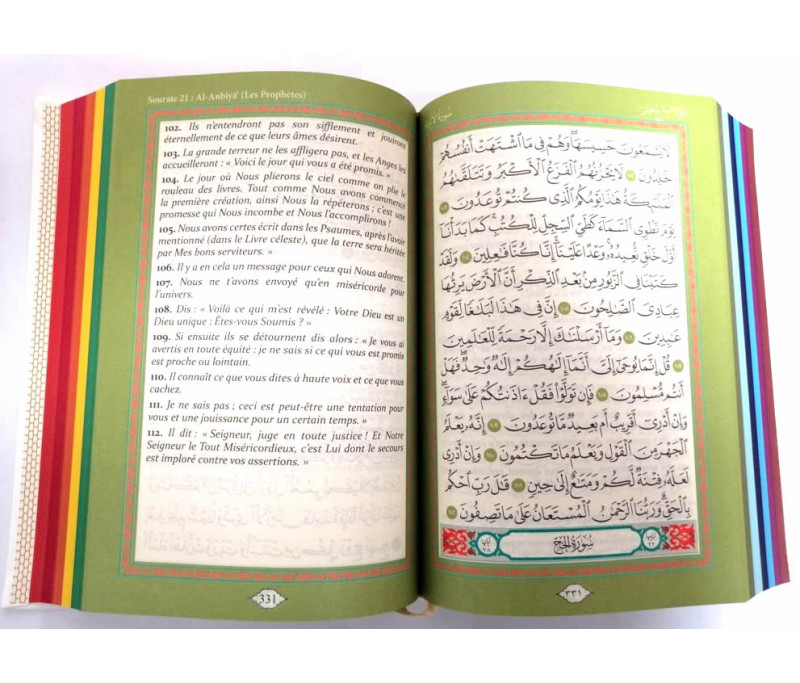 Sourate 21 : Al-Anbiyâ' (Les Prophètes)
102. Ils n'entendront pas son sifflement et jouiront
éternellement de ce que leurs âmes désirent.
103. La grande terreur ne les affligera pas, et les Anges les
accueilleront : « Voici le jour qui vous a été promis. »
104. Le jour où Nous plierons le ciel comme on plie le
rouleau des livres. Tout comme Nous avons commencé
la première création, ainsi Nous la répéterons ; c'est une
promesse qui Nous incombe et Nous l'accomplirons !
105. Nous avons certes écrit dans les Psaumes, après l'avoir
mentionné (dans le Livre céleste), que la terre sera héritée
par Mes bons serviteurs. »
106. Il y a en cela un message pour ceux qui Nous adorent.
107. Nous ne t'avons envoyé qu'en miséricorde pour
l'univers.
108. Dis : « Voilà ce qui m'est révélé : Votre Dieu est un
Dieu unique ; Êtes-vous Soumis ? »
109. Si ensuite ils se détournent dis alors : « Je vous ai
avertis en toute équité ; je ne sais si ce qui vous est promis
est proche ou lointain.
110. Il connaît ce que vous dites à haute voix et ce que vous
cachez.
111. Je ne sais pas ; ceci est peut-être une tentation pour
vous et une jouissance pour un certain temps. »
112. Il dit : « Seigneur, juge en toute justice ! Et Notre
Seigneur le Tout Miséricordieux, c'est Lui dont le secours
est imploré contre vos assertions. »
331
لَا يَسْمَعُونَ حَسِيسَهَا ۖ وَهُمْ فِى مَا ٱشْتَهَتْ أَنفُسُهُمْ
خَٰلِدُونَ ١٠٢ لَا يَحْزُنُهُمُ ٱلْفَزَعُ ٱلْأَكْبَرُ وَتَتَلَقَّىٰهُمُ
ٱلْمَلَٰٓئِكَةُ هَٰذَا يَوْمُكُمُ ٱلَّذِى كُنتُمْ تُوعَدُونَ ١٠٣
يَوْمَ نَطْوِى ٱلسَّمَآءَ كَطَىِّ ٱلسِّجِلِّ لِلْكُتُبِ ۚ كَمَا بَدَأْنَآ
أَوَّلَ خَلْقٍ نُّعِيدُهُۥ ۚ وَعْدًا عَلَيْنَآ ۚ إِنَّا كُنَّا فَٰعِلِينَ ١٠٤ وَلَقَدْ
كَتَبْنَا فِى ٱلزَّبُورِ مِنۢ بَعْدِ ٱلذِّكْرِ أَنَّ ٱلْأَرْضَ يَرِثُهَا
عِبَادِىَ ٱلصَّٰلِحُونَ ١٠٥ إِنَّ فِى هَٰذَا لَبَلَٰغًا لِّقَوْمٍ
عَٰبِدِينَ ١٠٦ وَمَآ أَرْسَلْنَٰكَ إِلَّا رَحْمَةً لِّلْعَٰلَمِينَ
١٠٧ قُلْ إِنَّمَا يُوحَىٰٓ إِلَىَّ أَنَّمَآ إِلَٰهُكُمْ إِلَٰهٌ وَٰحِدٌ ۖ فَهَلْ
أَنتُم مُّسْلِمُونَ ١٠٨ فَإِن تَوَلَّوْا۟ فَقُلْ ءَاذَنتُكُمْ عَلَىٰ سَوَآءٍ ۖ
وَإِنْ أَدْرِىٓ أَقَرِيبٌ أَم بَعِيدٌ مَّا تُوعَدُونَ ١٠٩ إِنَّهُۥ يَعْلَمُ
ٱلْجَهْرَ مِنَ ٱلْقَوْلِ وَيَعْلَمُ مَا تَكْتُمُونَ ١١٠ وَإِنْ أَدْرِى
لَعَلَّهُۥ فِتْنَةٌ لَّكُمْ وَمَتَٰعٌ إِلَىٰ حِينٍ ١١١ قَٰلَ رَبِّ ٱحْكُم
بِٱلْحَقِّ ۗ وَرَبُّنَا ٱلرَّحْمَٰنُ ٱلْمُسْتَعَانُ عَلَىٰ مَا تَصِفُونَ ١١٢
سُورَةُ الحَجّ
٣٣١